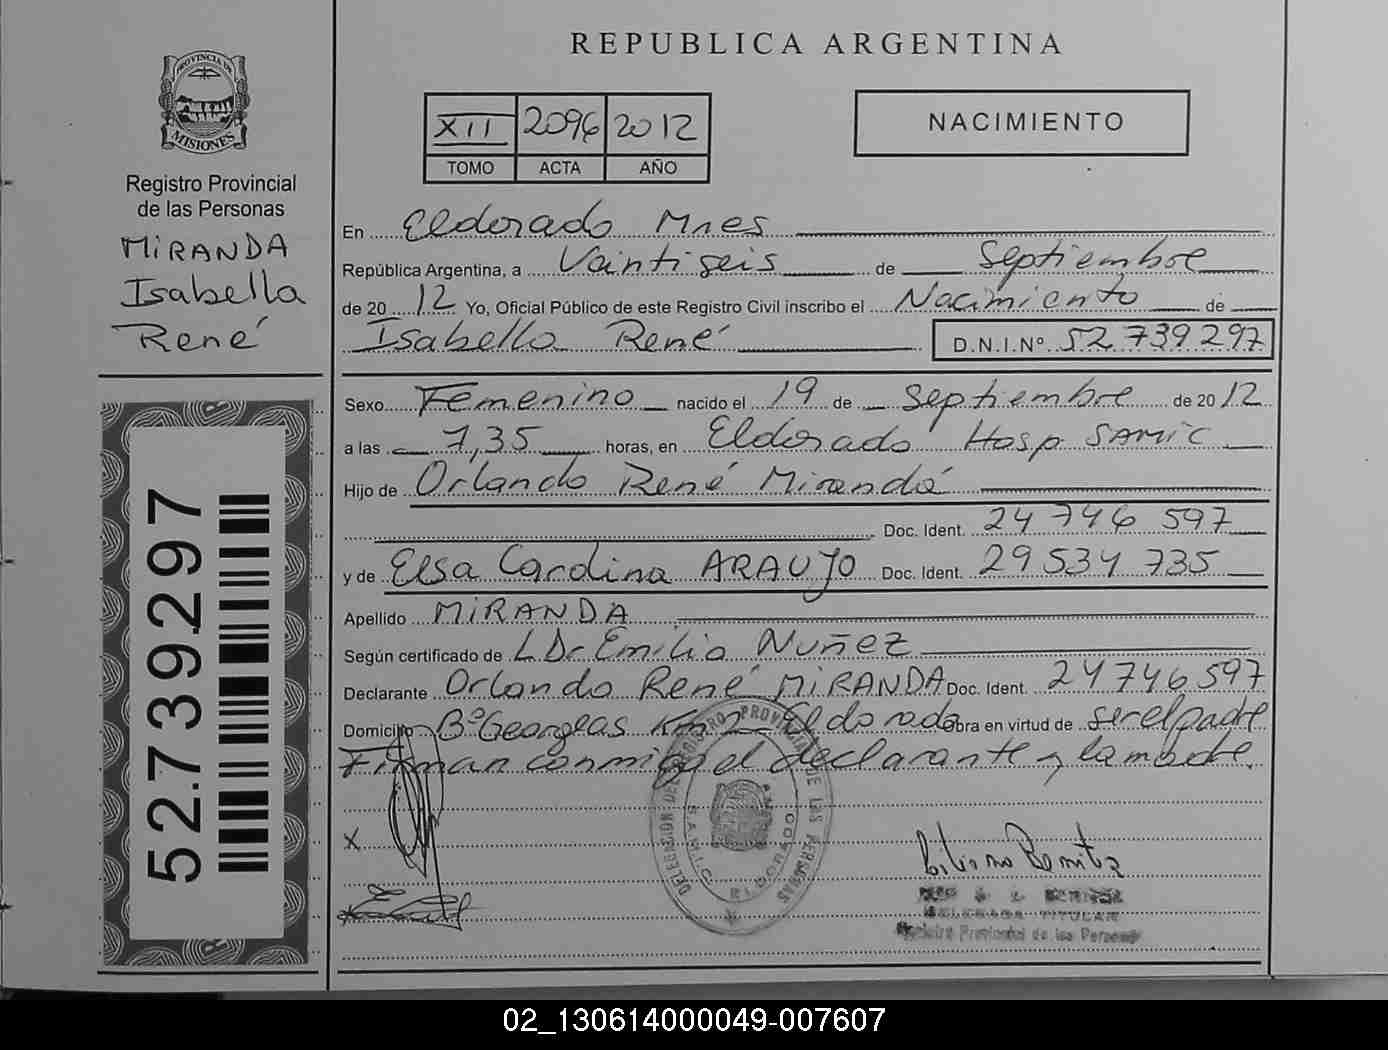 REPUBLICA ARGENTINA
PROVINCIA DE
MISIONES
Registro Provincial
de las Personas
MIRANDA
Isabella
René
XII 2096 2012
TOMO ACTA AÑO
NACIMIENTO
En Eldorado Mnes
República Argentina, a Vaintiseis de Septiembre
de 2012 Yo, Oficial Público de este Registro Civil inscribo el Nacimiento de
Isabella René D.N.I.Nº 52.739.297
Sexo Femenino nacido el 19 de Septiembre de 2012
a las 7,35 horas, en Eldorado Hosp SAMIC
Hijo de Orlando René Miranda
Doc. Ident. 24 746 597
y de Elsa Cardina ARAUJO Doc. Ident. 29534 735
Apellido MIRANDA
Según certificado de L Dr Emilio Nuñez
Declarante Orlando René MIRANDA Doc. Ident. 24746597
Domicilio Bº Georgeas Km 2 Eldorado Obra en virtud de ser el padre
Firman conmigo el declarante y la madre.
X
DELEGACION DEL REGISTRO PROVINCIAL DE LAS PERSONAS
S.A.M.I.C. ELDORADO
DELEGADA TITULAR
Registro Provincial de las Personas
52.739.297
02_130614000049-007607